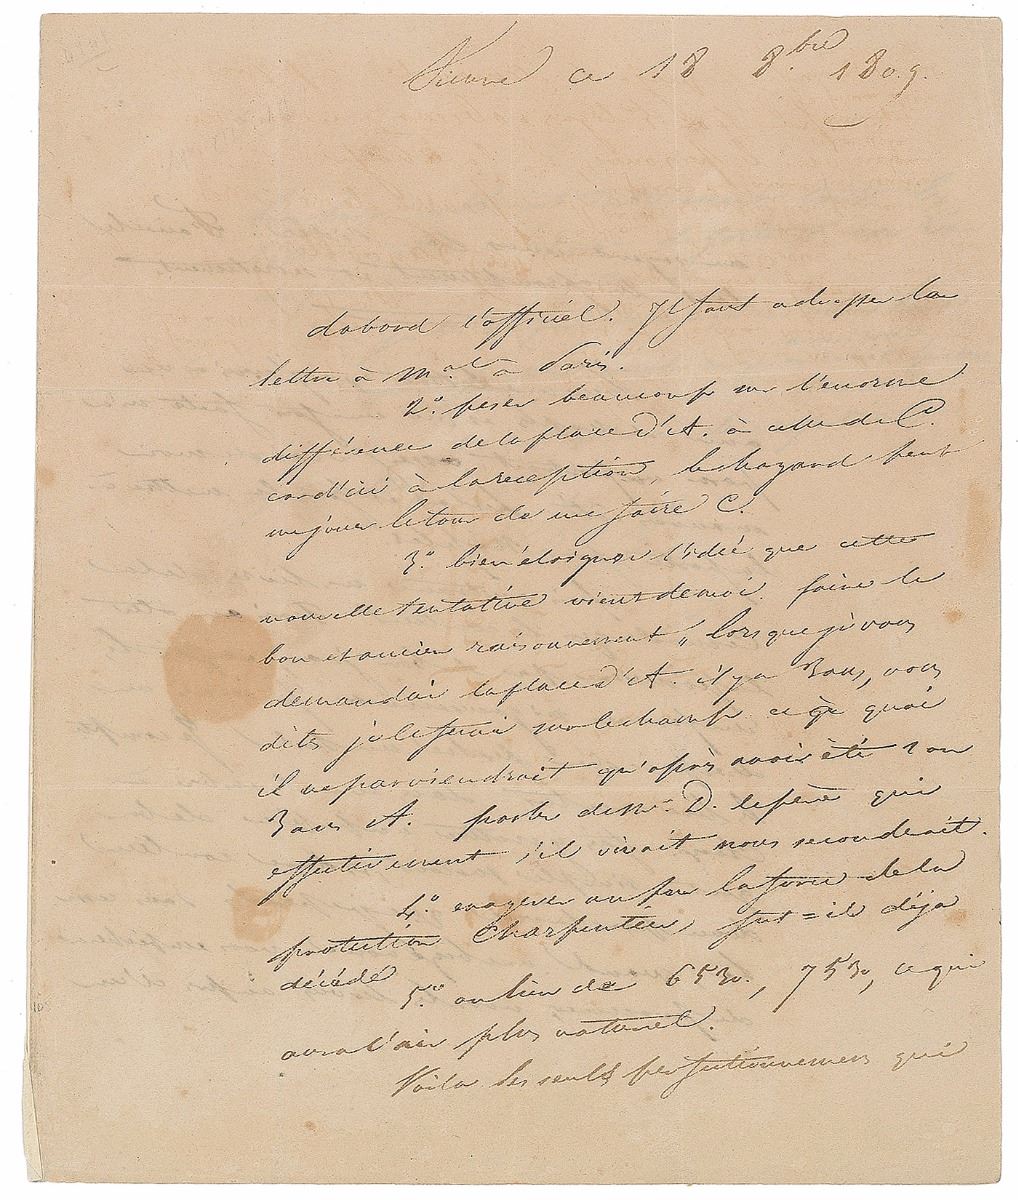 Vienne ce 18 8.bre 1809.
dabord l'officiel. Il faut adresser la
lettre à Mal à Paris.
2.° peser beaucoup sur l'enorme
différence de la place d'A. à celle de C.
car d'ici à la reception, le hazard peut
me jouer le tour de me faire C.
3.° bien éloigner l'idée que cette
nouvelle tentative vient de moi. faire le
bon et ancien raisonnement „ lorsque je vous
demandai la place d'A. il y a 3 ans, vous
dites je le ferai sur le champ ce à quoi
il ne parviendrait qu'après avoir été 2 ou
3 ans A. parler de Mr. D. le père qui
effectivement s'il vivait nous seconderait.
4.° exagerer un peu la force de la
protection Charpentier, fut=il déja
décédé
5.° au lieu de 6530, 7530, ce qui
aura l'air plus naturel.
Voila les seuls perfectionnemens qui